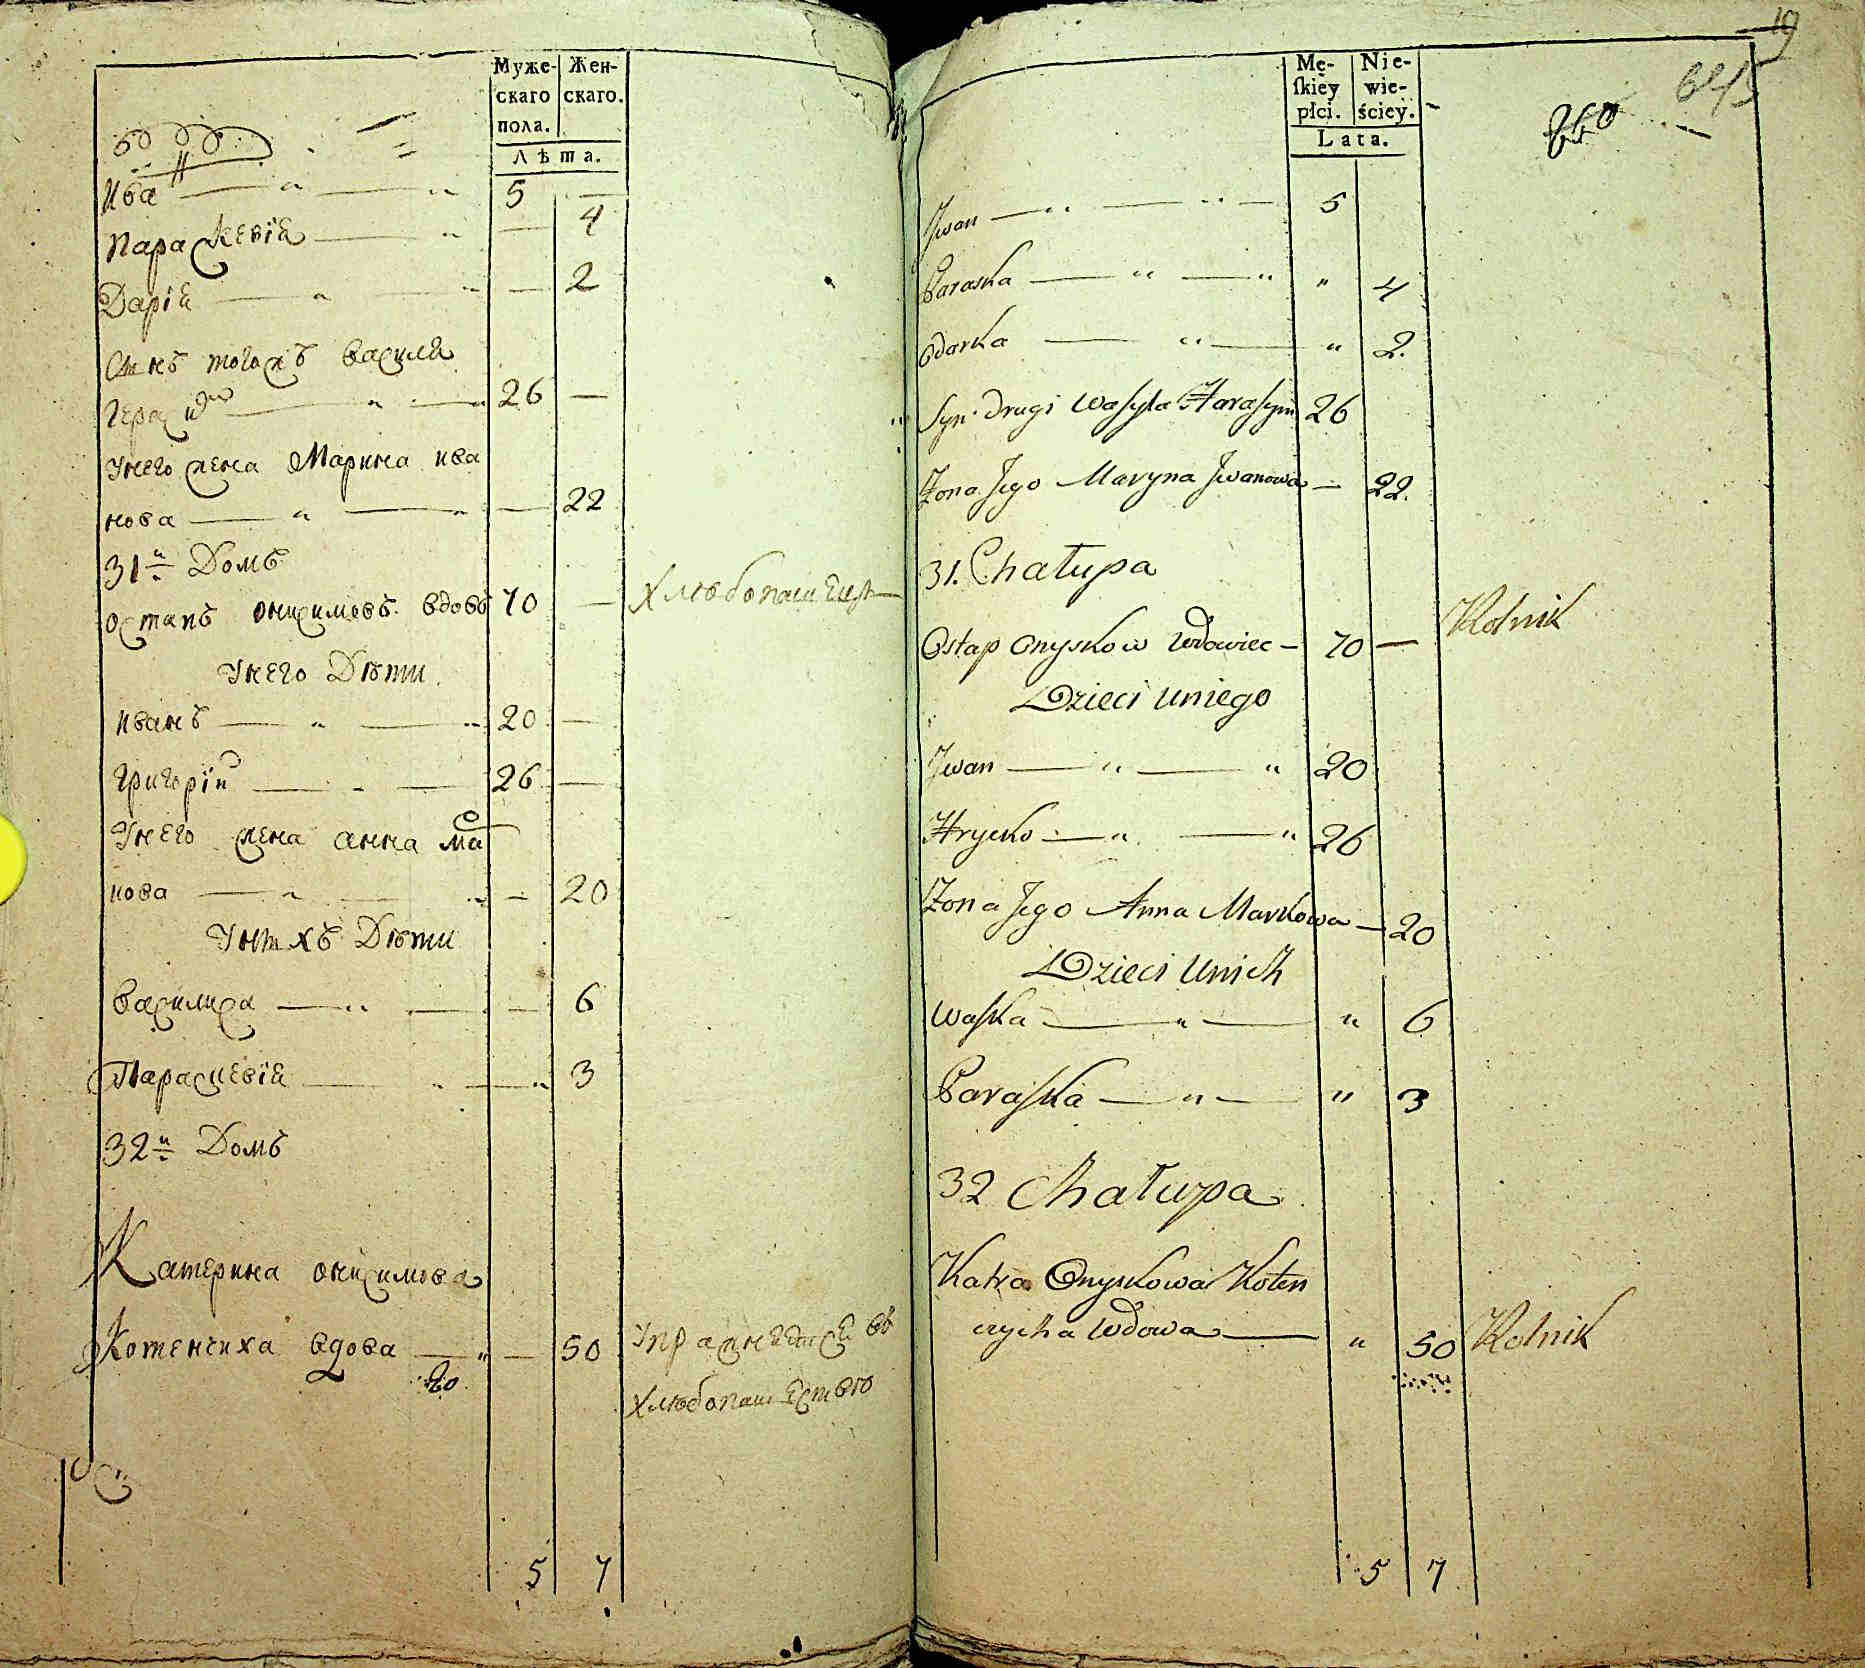 Муже-
скаго
пола.
Жен-
скаго.
Лѣта.
Ива 5 —
Параскевія — 4
Дарія — 2
Сынъ тогожъ Василя
Герасим 26 —
Унего жена Марина ива
нова — 22
31й Домъ
Остапъ Онисимовъ вдовъ 70 — Хлѣбопашецъ
Унего Дѣти
Иванъ 20 —
Григорій 26 —
Унего жена Анна Ма
кова — 20
Унихъ Дѣти
Василиса — 6
Параскевія — 3
32й Домъ
Катерина Онисимова
Котенчиха вдова — 50 Упражняется въ
хлѣбопашество
5 7
19
Mę-
ſkiey
płci.
Nie-
wie-
ściey.
Lata.
Jwan 5
Paraska " 4
Odarka " 2.
Syn drugi Wasyla Harasym 26
Zona Jego Maryna Jwanowa — 22.
31. Chałupa
Ostap Onyskow Wdowiec — 70 — Rolnik
Dzieci uniego
Jwan 20
Hrycko 26
Zona Jego Anna Markowa — 20
Dzieci Unich
Waska " 6
Paraska " 3
32 Chałupa
Katra Onyskowa Koten
czycha Wdowa " 50 Rolnik
5 7